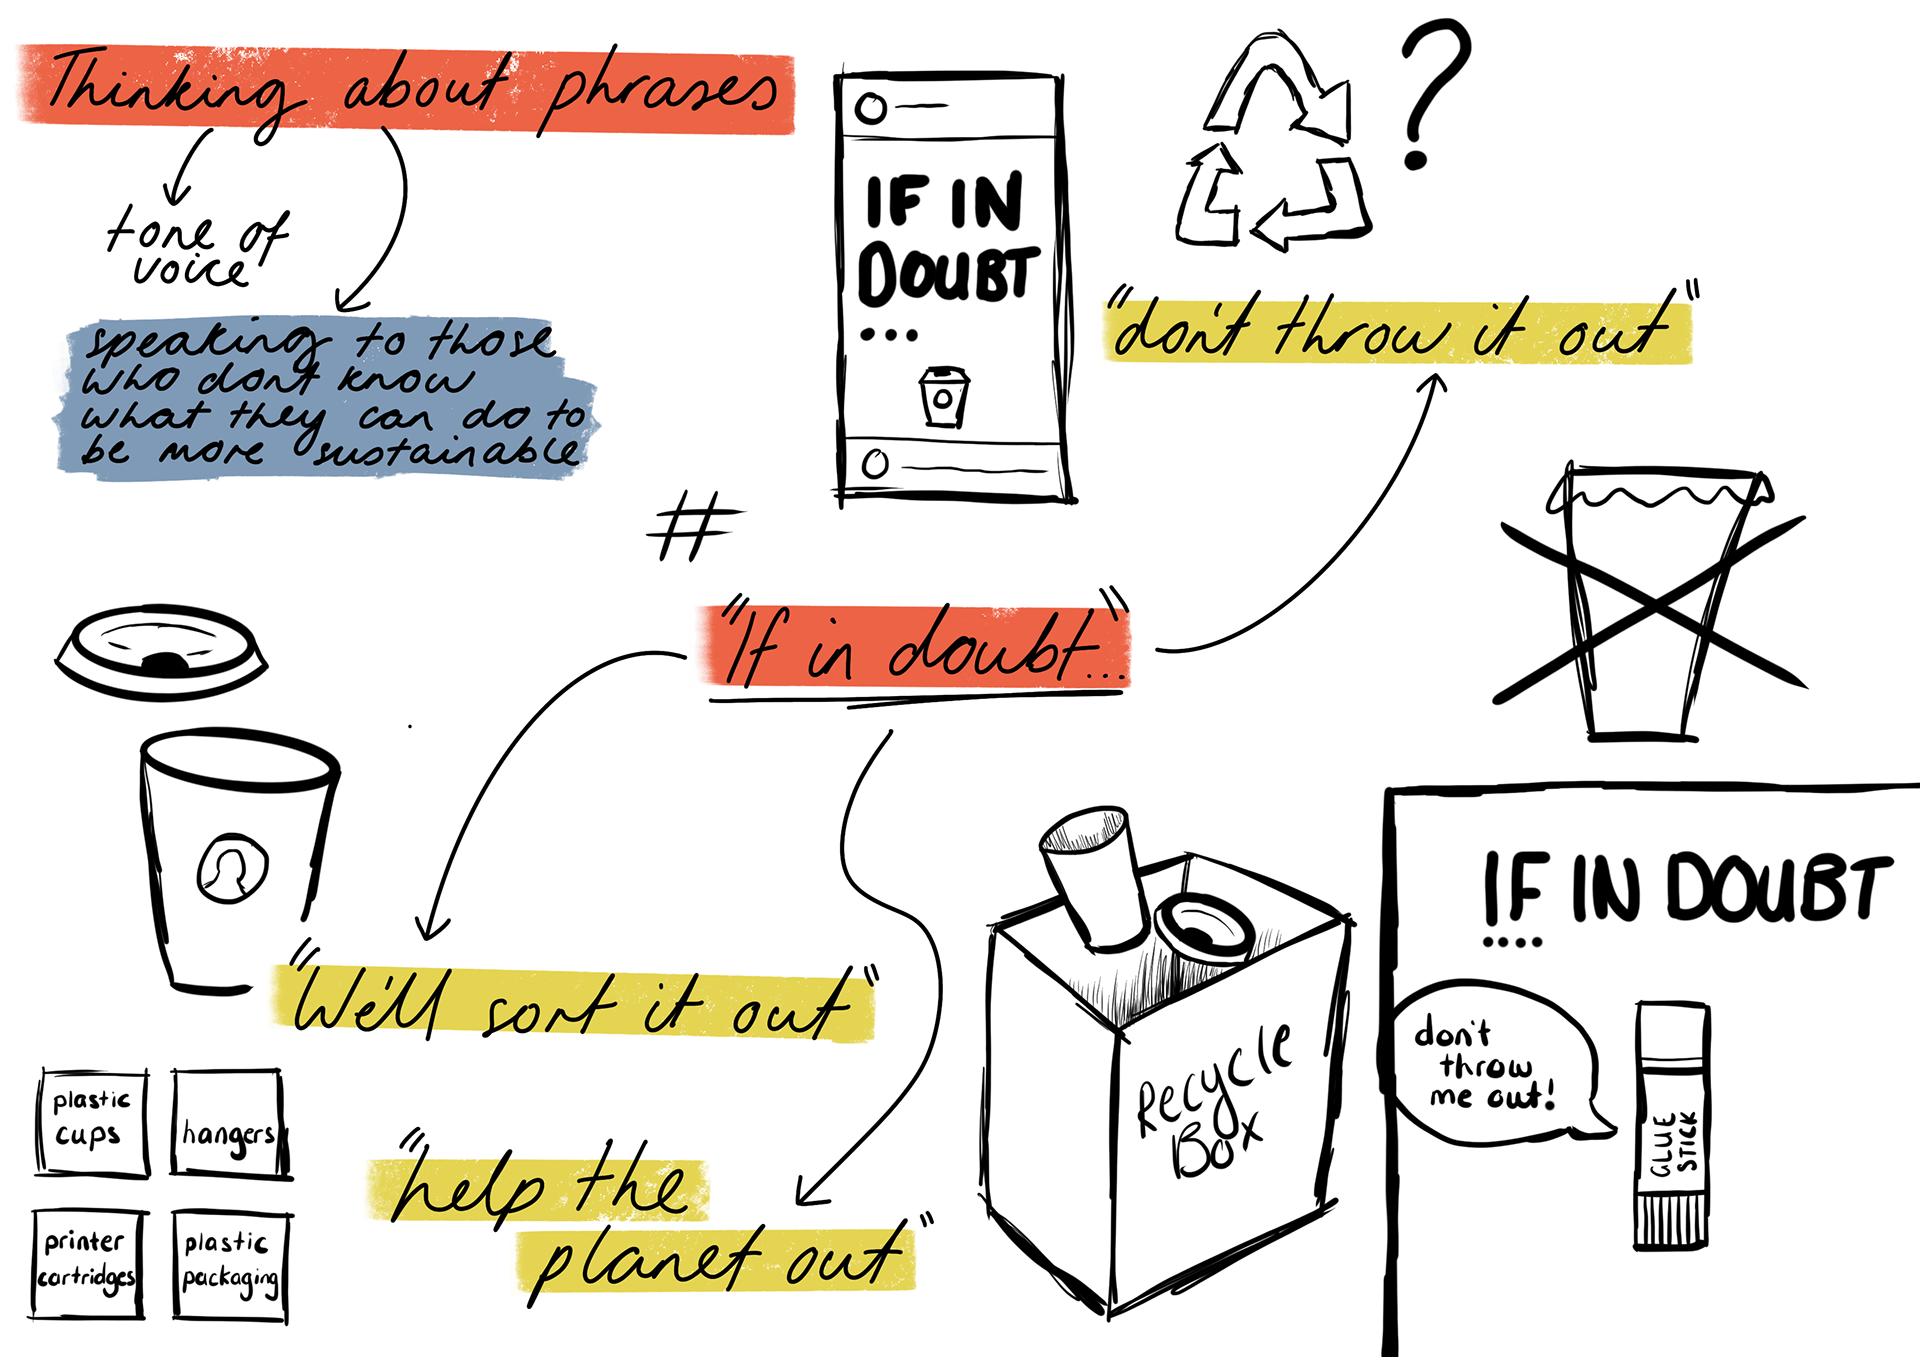 Thinking about phrases
tone of
voice
speaking to those
who don't know
what they can do to
be more sustainable
IF IN
DOUBT
...
?
"don't throw it out"
#
"If in doubt..."
"We'll sort it out"
"help the
planet out"
plastic
cups
hangers
printer
cartridges
plastic
packaging
Recycle
Box
IF IN DOUBT
....
don't
throw
me out!
GLUE
STICK